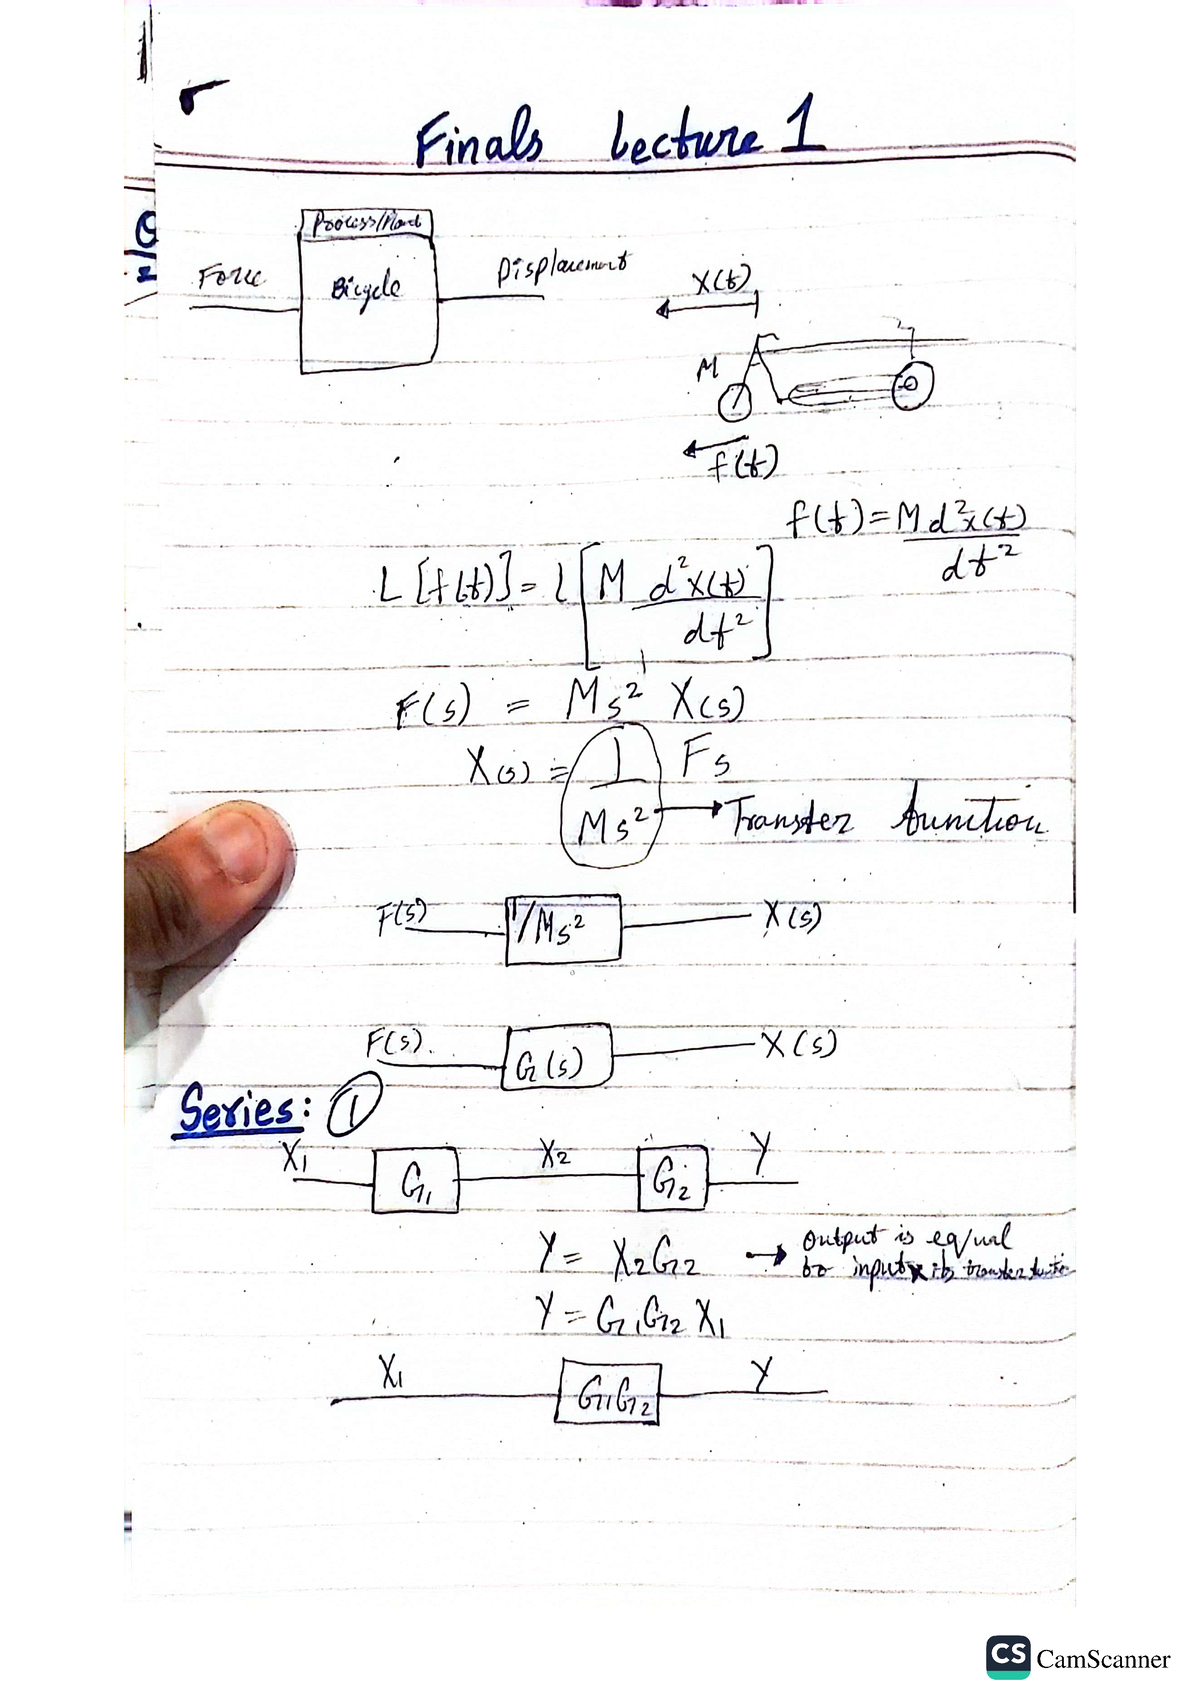 Finals Lecture 1
Process/Plant
Force Bicycle Displacement
X(t)
M
f(t)
f(t) = M d²x(t)
dt²
L [f(t)] = L [M d²x(t)
dt²]
F(s) = Ms² X(s)
X(s) = 1 Fs
Ms² → Transfer function
F(s) 1/Ms² X(s)
F(s). G(s) X(s)
Series: 1
X₁ G₁ X₂ G₂ Y
Y = X₂G₂ → Output is equal
to input x its transfer
Y = G₁G₂ X₁
X₁ G₁G₂ Y
CS CamScanner